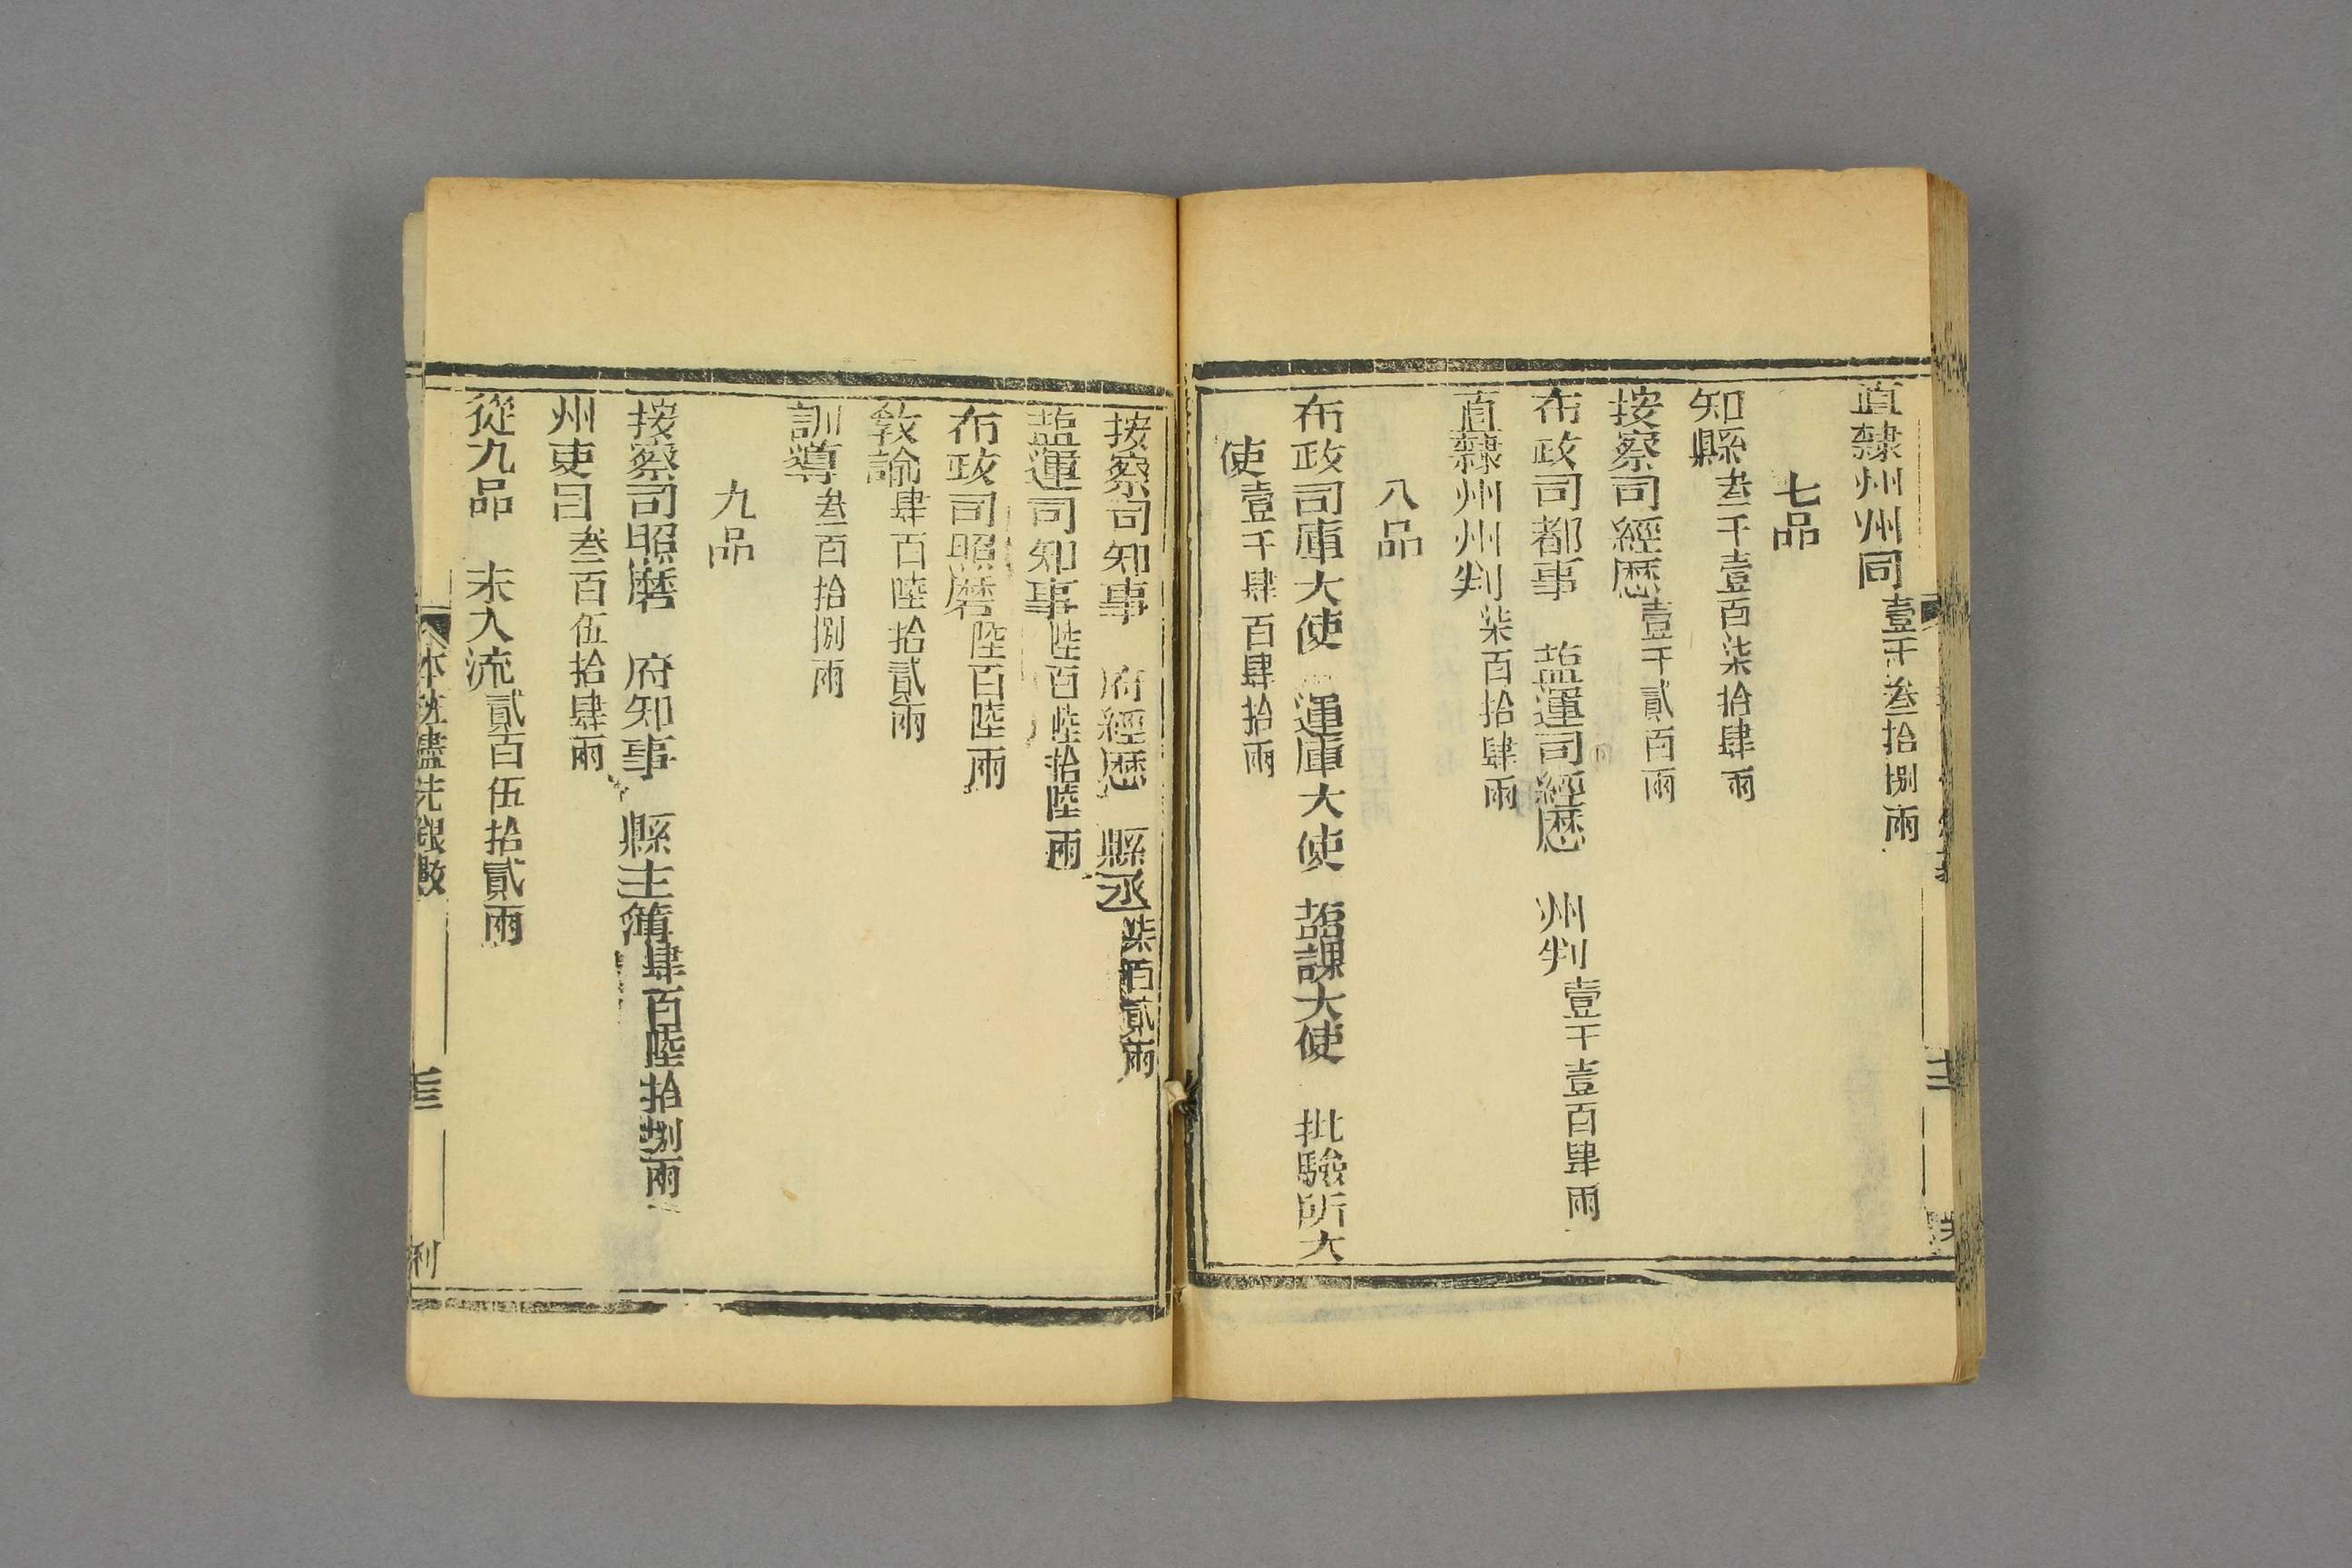 直隸州州同壹千叁拾捌兩
七品
知縣叁千壹百柒拾肆兩
按察司經歷壹千貳百兩
布政司都事　盐運司經歷　州判壹千壹百肆兩
直隸州州判柒百拾肆兩
八品
布政司庫大使　運庫大使　盐課大使　批驗所大
使壹千肆百肆拾兩
按察司知事　府經歷　縣丞柒百貳兩
盐運司知事陸百陸拾陸兩
布政司照磨陸百陸兩
敎諭肆百陸拾貳兩
訓導叁百拾捌兩
九品
按察司照磨　府知事　縣主簿肆百陸拾捌兩
州吏目叁百伍拾肆兩
從九品　未入流貳百伍拾貳兩
本班儘先銀數
利